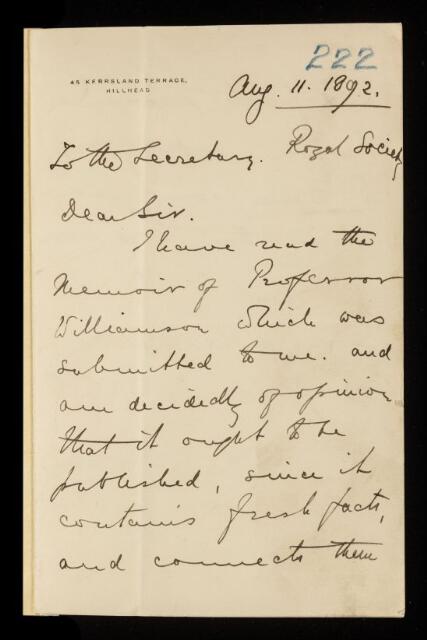 222
45 KERRSLAND TERRACE,
HILLHEAD
Aug. 11. 1892.
To the Secretary. Royal Society
Dear Sir.
I have read the
Memoir of Professor
Williamson which was
submitted to me. and
am decidedly of opinion
that it ought to be
published, since it
contains fresh facts,
and connects them